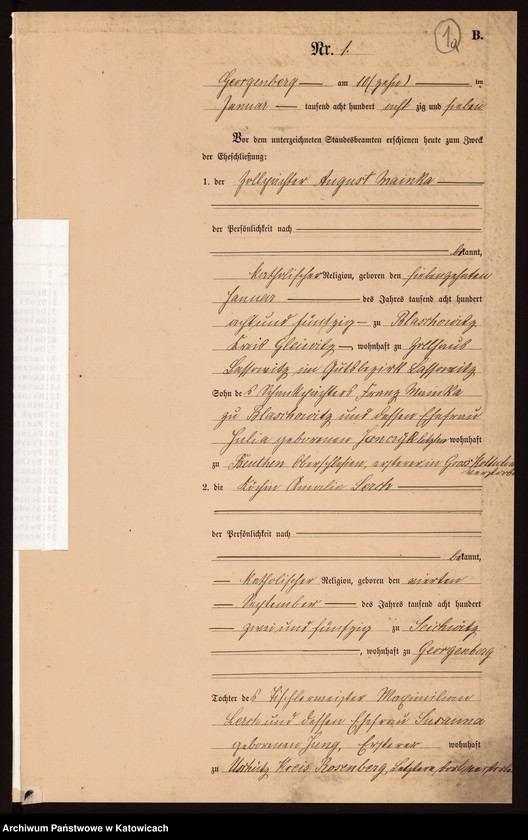 1a
B.
Nr. 1.
Georgenberg am 10 (zehn) im
Januar tausend acht hundert acht zig und sieben
Vor dem unterzeichneten Standesbeamten erschienen heute zum Zweck
der Eheschließung:
1. der Zollpächter August Mainka
der Persönlichkeit nach
bekannt,
katholischer Religion, geboren den siebenzehnten
Januar des Jahres tausend acht hundert
acht und fünfzig zu Blaschowitz
Kreis Gleiwitz, wohnhaft zu Zollhaus
Lassowitz im Gutsbezirk Lassowitz
Sohn des Schenkpächters Franz Mainka
zu Blaschowitz und dessen Ehefrau
Julia geborenen Janczyk letztere wohnhaft
zu Beuthen Oberschlesien, ersterer in Gross
2. die Köchin Amalie Lerch
der Persönlichkeit nach
bekannt,
katholischer Religion, geboren den vierten
September des Jahres tausend acht hundert
zwei und fünfzig zu Seichwitz
, wohnhaft zu Georgenberg
Tochter des Tischlermeister Maximilian
Lerch und dessen Ehefrau Susanna
geborenen Jung, Ersterer wohnhaft
zu Kreis Rosenberg, Letztere
Archiwum Państwowe w Katowicach